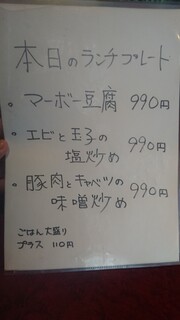 本日のランチプレート
・マーボー豆腐 990円
・エビと玉子の
塩炒め 990円
・豚肉とキャベツの
味噌炒め 990円
ごはん大盛り
プラス 110円